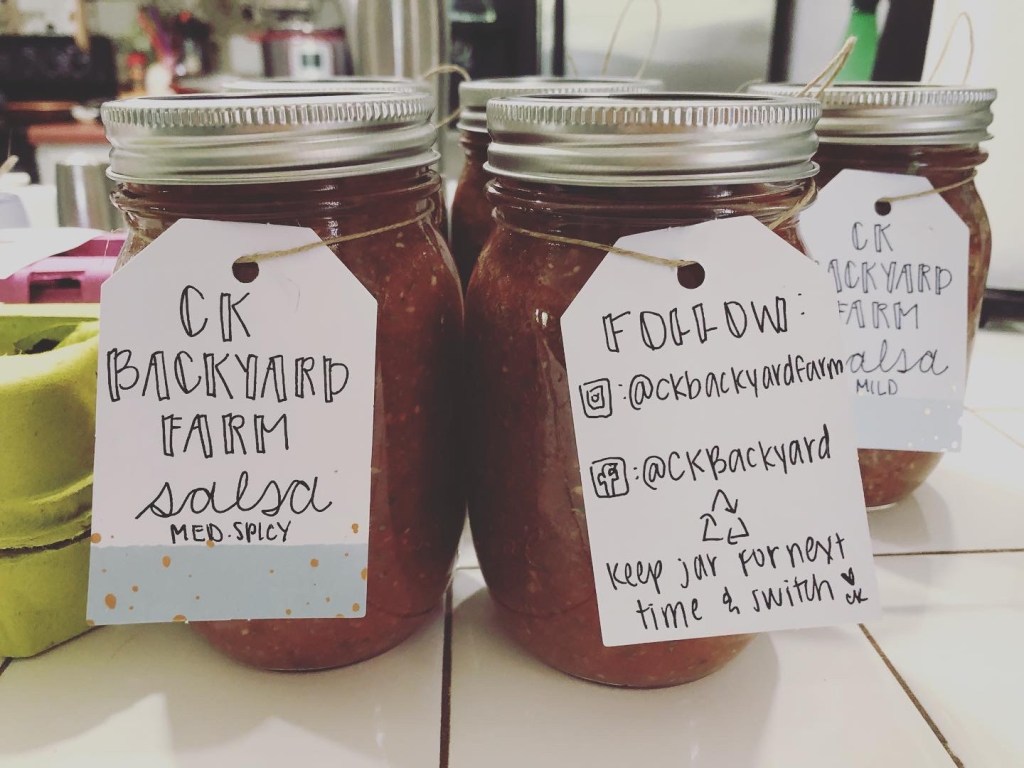 CK
BACKYARD
FARM
salsa
MED. SPICY
FOLLOW:
:@ckbackyardfarm
:@CKBackyard
keep jar for next
time & switch
CK
CK
ACKYARD
FARM
salsa
MILD